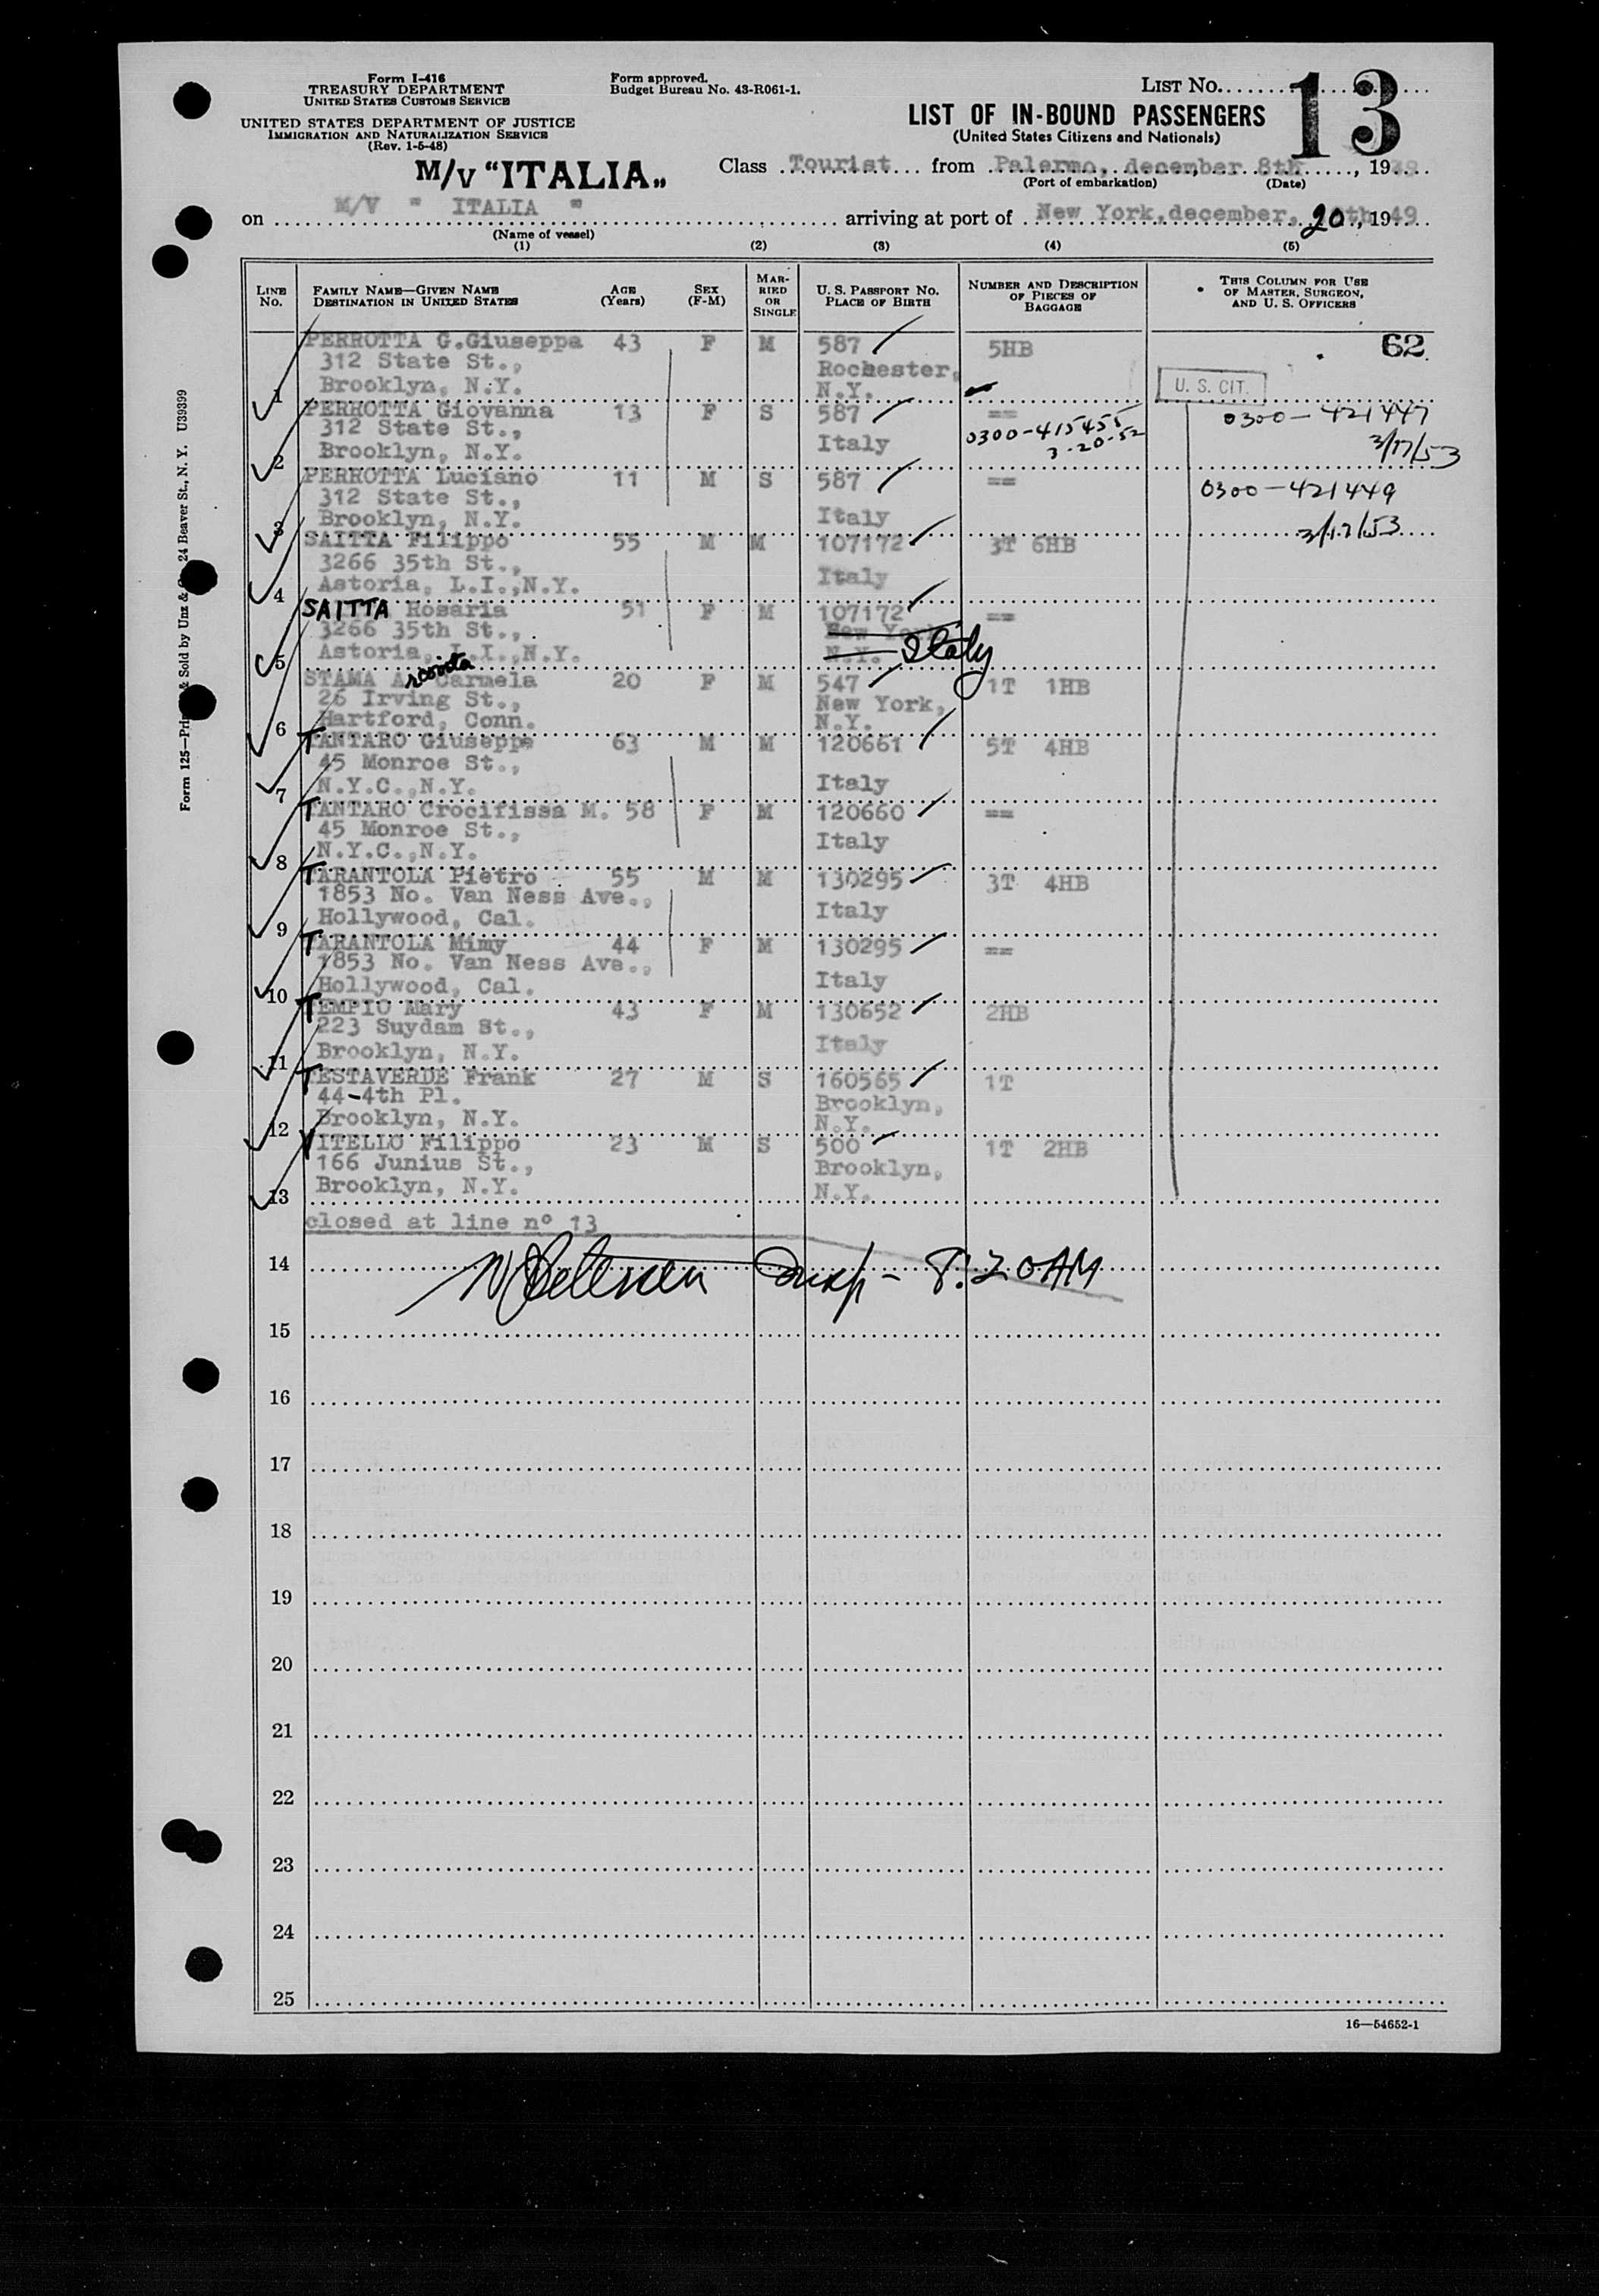 Form I-416
TREASURY DEPARTMENT
UNITED STATES CUSTOMS SERVICE
UNITED STATES DEPARTMENT OF JUSTICE
IMMIGRATION AND NATURALIZATION SERVICE
(Rev. 1-5-48)
Form approved.
Budget Bureau No. 43-R061-1.
LIST No. 13
LIST OF IN-BOUND PASSENGERS
(United States Citizens and Nationals)
M/V "ITALIA„
Class Tourist from Palermo, december 8th, 19
(Port of embarkation) (Date)
on M/V " ITALIA " arriving at port of New York, december, 20th, 1949
(Name of vessel)
(1) (2) (3) (4) (5)
LINE No. FAMILY NAME—GIVEN NAME DESTINATION IN UNITED STATES AGE (Years) SEX (F-M) MARRIED OR SINGLE U. S. PASSPORT NO. PLACE OF BIRTH NUMBER AND DESCRIPTION OF PIECES OF BAGGAGE THIS COLUMN FOR USE OF MASTER, SURGEON, AND U. S. OFFICERS
PERROTTA G.Giuseppa 43 F M 587 5HB 62
312 State St., Rochester,
1 Brooklyn, N.Y. N.Y. U. S. CIT.
PERROTTA Giovanna 13 F S 587 == 0300-421447
312 State St., 0300-415455
2 Brooklyn, N.Y. Italy 3-20-52 3/17/53
PERROTTA Luciano 11 M S 587 == 0300-421449
312 State St.,
3 Brooklyn, N.Y. Italy 3/17/53
SAITTA Filippo 55 M M 107172 3T 6HB
3266 35th St.,
4 Astoria, L.I.,N.Y. Italy
SAITTA Rosaria 51 F M 107172 ==
3266 35th St., New York
5 Astoria, L.I.,N.Y. N.Y. Italy
STAMA Arconta Carmela 20 F M 547 1T 1HB
26 Irving St., New York,
6 Hartford, Conn. N.Y.
TANTARO Giuseppe 63 M M 120661 5T 4HB
45 Monroe St.,
7 N.Y.C.,N.Y. Italy
TANTARO Crocifissa M. 58 F M 120660 ==
45 Monroe St.,
8 N.Y.C.,N.Y. Italy
TARANTOLA Pietro 55 M M 130295 3T 4HB
1853 No. Van Ness Ave.,
9 Hollywood, Cal. Italy
TARANTOLA Mimy 44 F M 130295 ==
1853 No. Van Ness Ave.,
10 Hollywood, Cal. Italy
TEMPIO Mary 43 F M 130652 2HB
223 Suydam St.,
11 Brooklyn, N.Y. Italy
TESTAVERDE Frank 27 M S 160565 1T
44-4th Pl. Brooklyn,
12 Brooklyn, N.Y. N.Y.
VITELLO Filippo 23 M S 500 1T 2HB
166 Junius St., Brooklyn,
13 Brooklyn, N.Y. N.Y.
closed at line nº 13
14 Insp - 8:20AM
15
16
17
18
19
20
21
22
23
24
25
16—54652-1
Form 125— & Sold by Unz & 24 Beaver St., N. Y. U39399